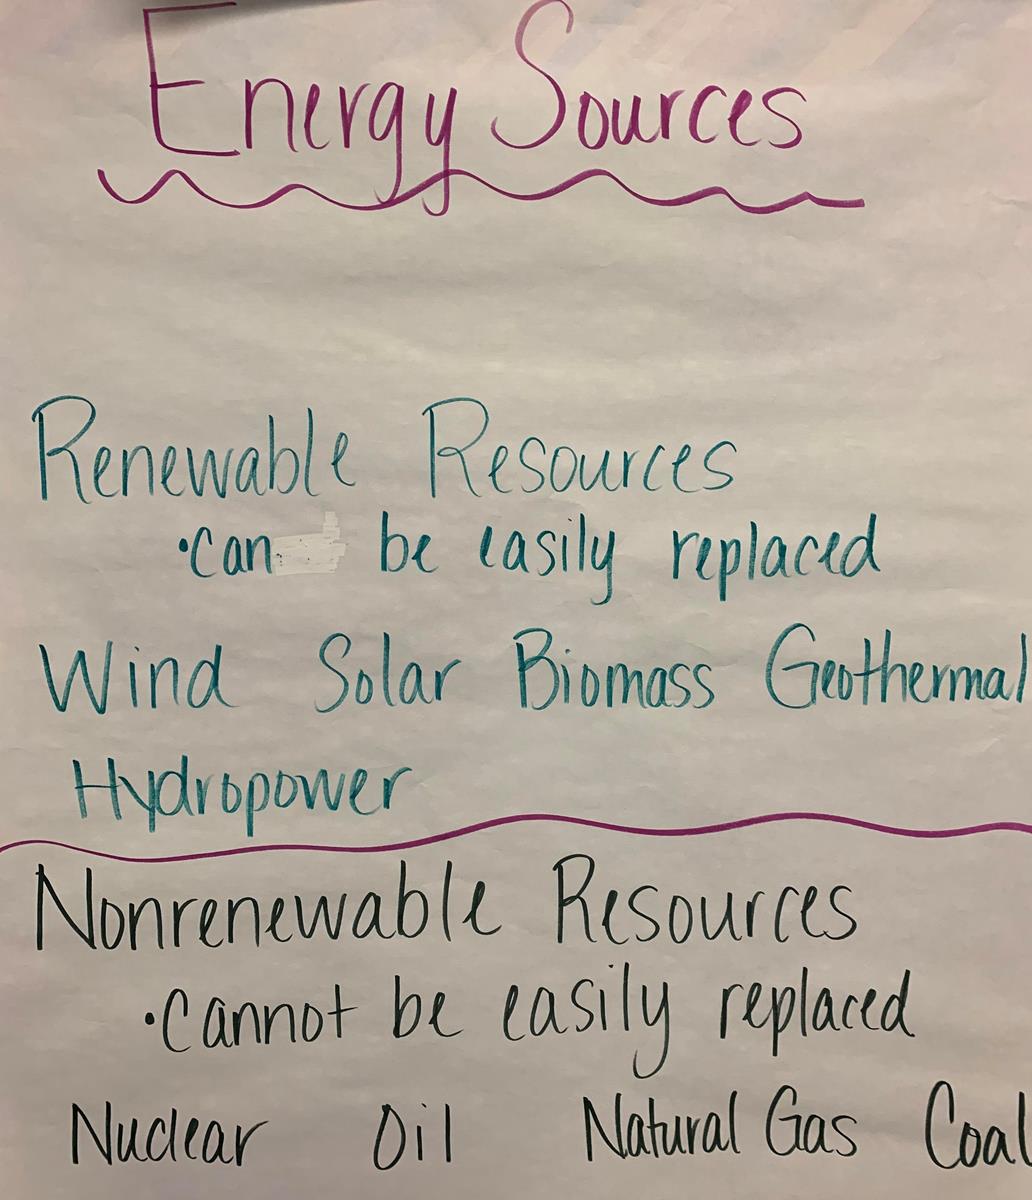 Energy Sources
Renewable Resources
•can be easily replaced
Wind Solar Biomass Geothermal
Hydropower
Nonrenewable Resources
•cannot be easily replaced
Nuclear Oil Natural Gas Coal